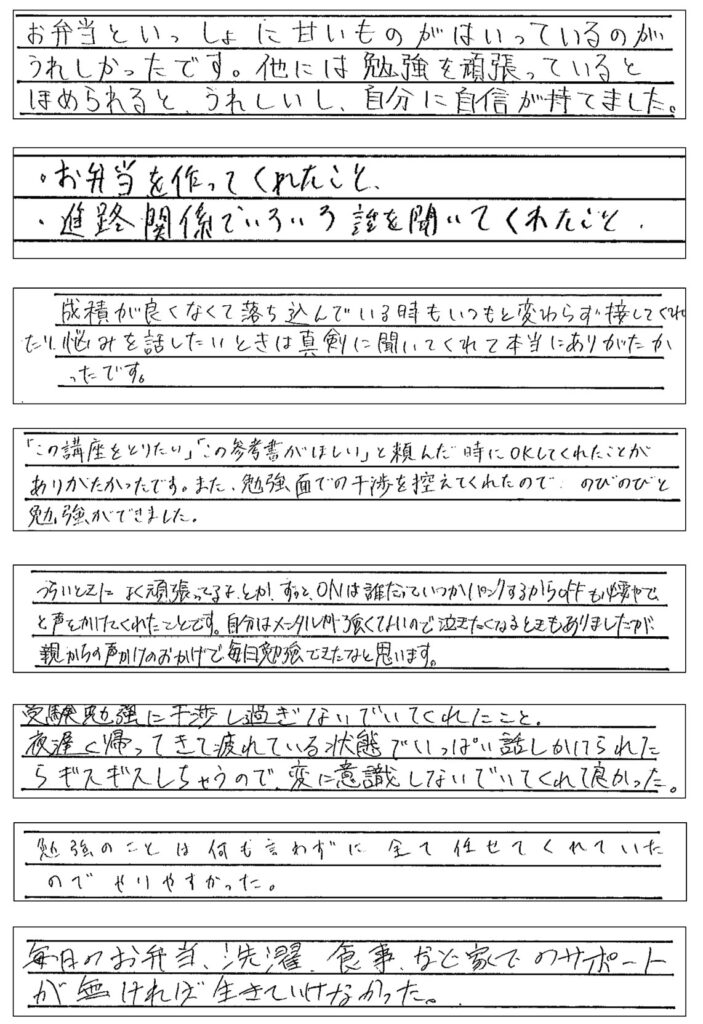 お弁当といっしょに甘いものがはいっているのが
うれしかったです。他には勉強を頑張っていると
ほめられると、うれしいし、自分に自信が持てました。
・お弁当を作ってくれたこと、
・進路関係でいろいろ話を聞いてくれたこと.
成積が良くなくて落ち込んでいる時もいつもと変わらず接してくれ
たり、悩みを話したいときは真剣に聞いてくれて本当にありがたか
ったです。
「この講座をとりたい」「この参考書がほしい」と頼んだ時にOKしてくれたことが
ありがたかったです。また、勉強面での干渉を控えてくれたので、のびのびと
勉強ができました。
つらいときに よく頑張ってるよ、とか、ずっと、ONは誰だっていつかパンクするからOFFも必要やで、
と声をかけてくれたことです。自分はメンタルが強くないので泣きたくなるときもありましたが
親からの声かけのおかげで毎日勉強できたなと思います。
受験勉強に干渉し過ぎないでいてくれたこと.
夜遅く帰ってきて疲れている状態でいっぱい話しかけられた
らギスギスしちゃうので、変に意識しないでいてくれて良かった。
勉強のことは何も言わずに全て任せてくれていた
のでやりやすかった。
毎日のお弁当、洗濯、食事、など家でのサポート
が無ければ生きていけなかった。